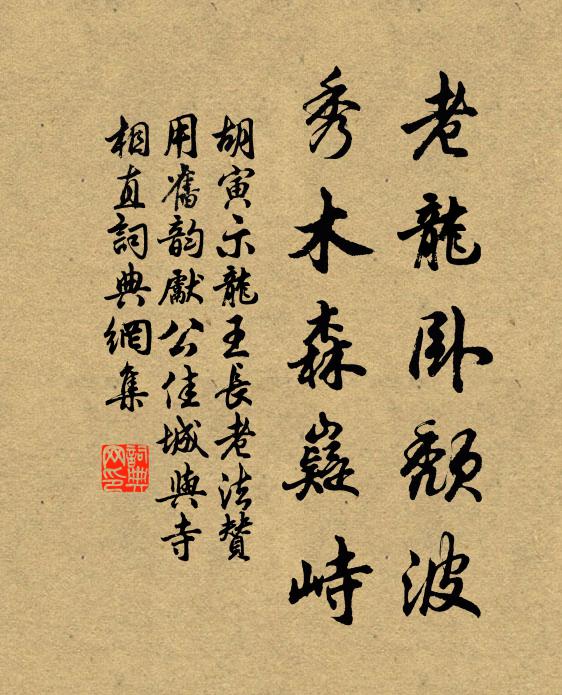 老龍卧頹波
秀木森嶷峙
胡寅示龍王長老法贊
用舊韵獻公佳城與寺
相直詞典網集
詞典網印